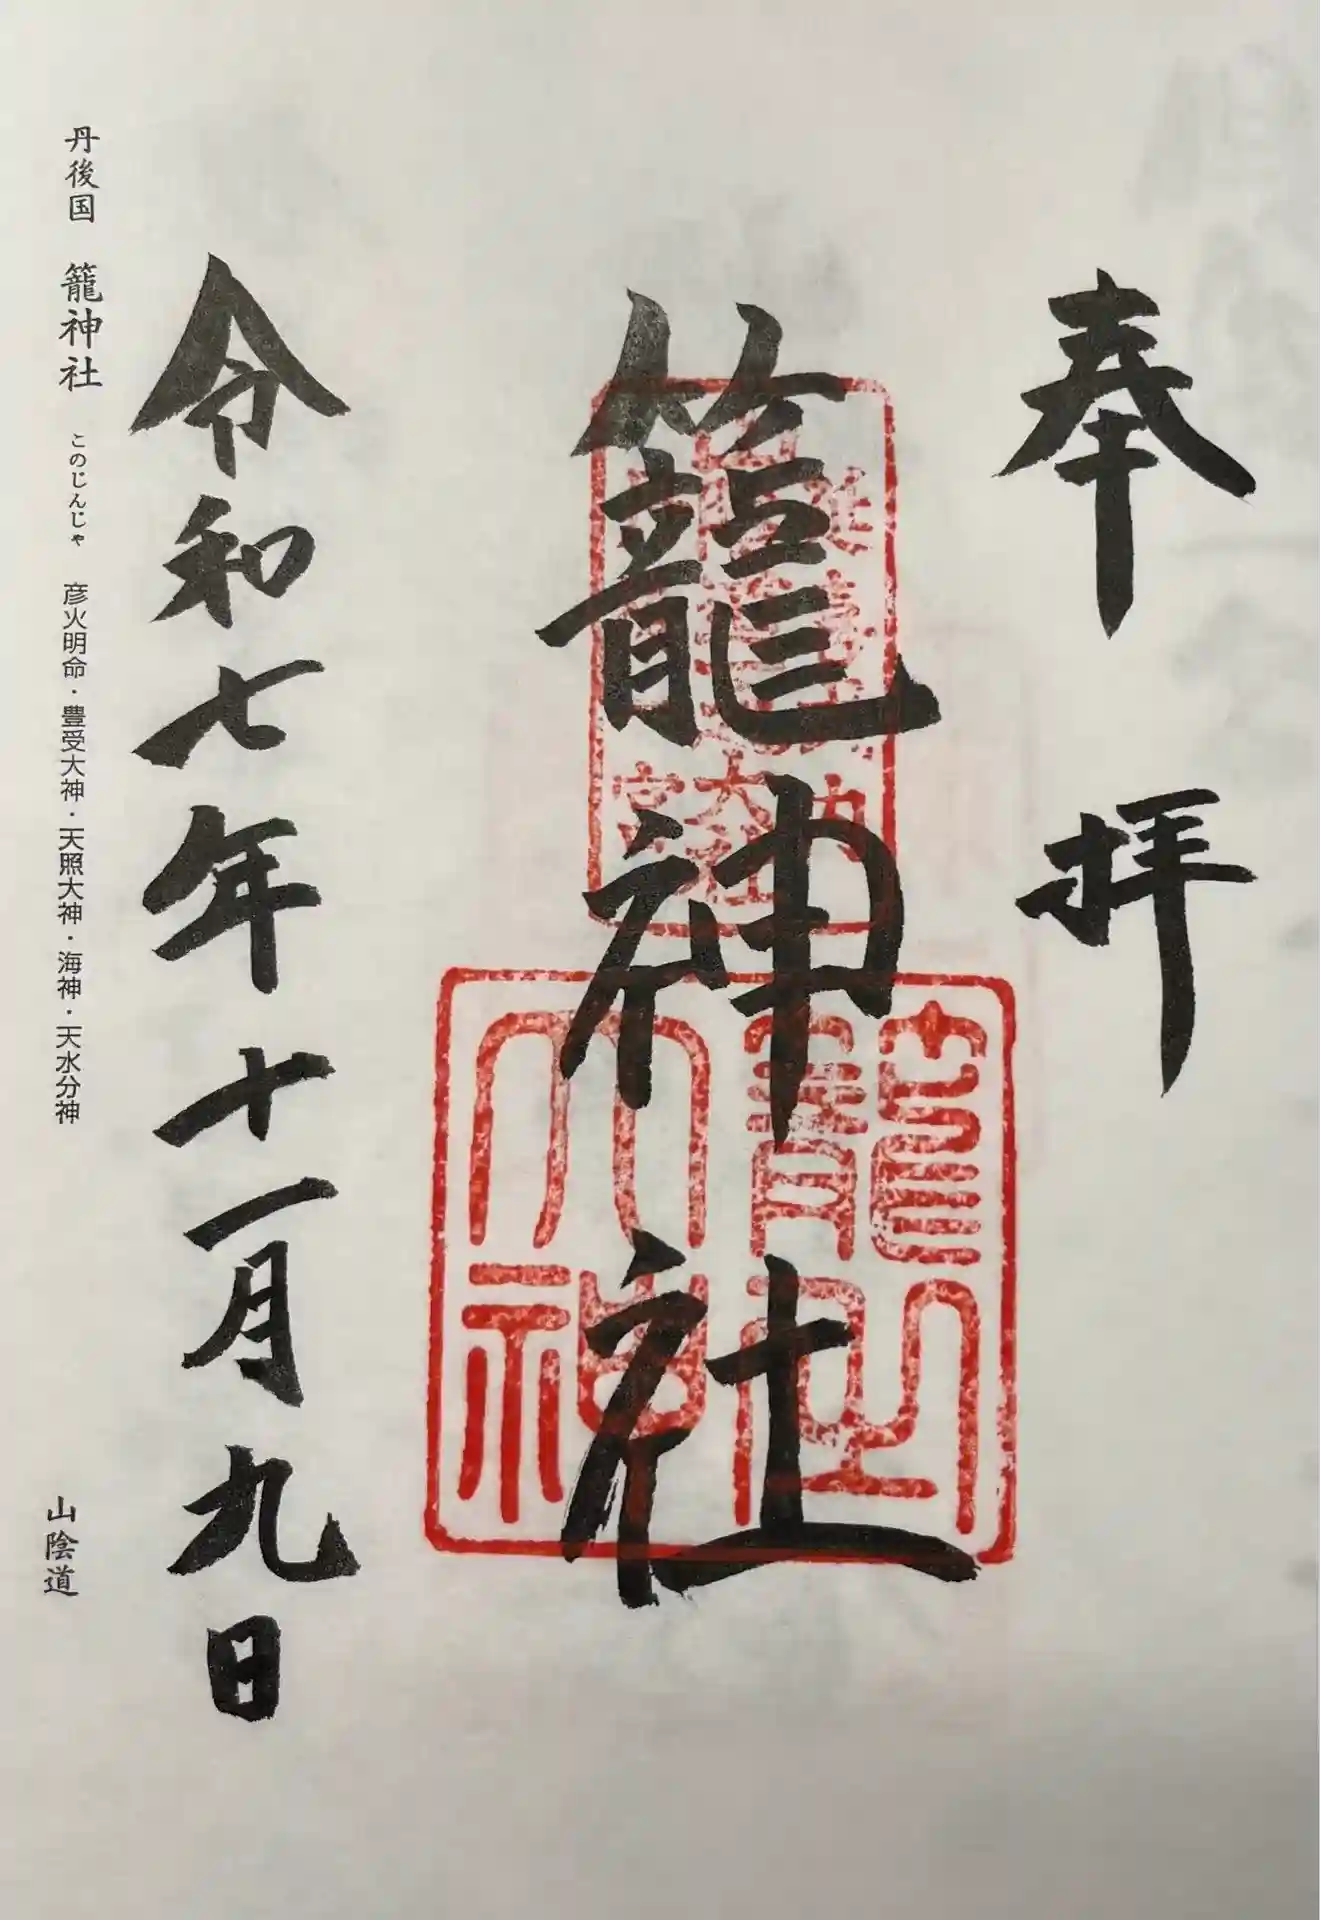 奉拝
籠神社
令和七年十一月九日
丹後国 籠神社 このじんじゃ 彦火明命・豊受大神・天照大神・海神・天水分神
山陰道